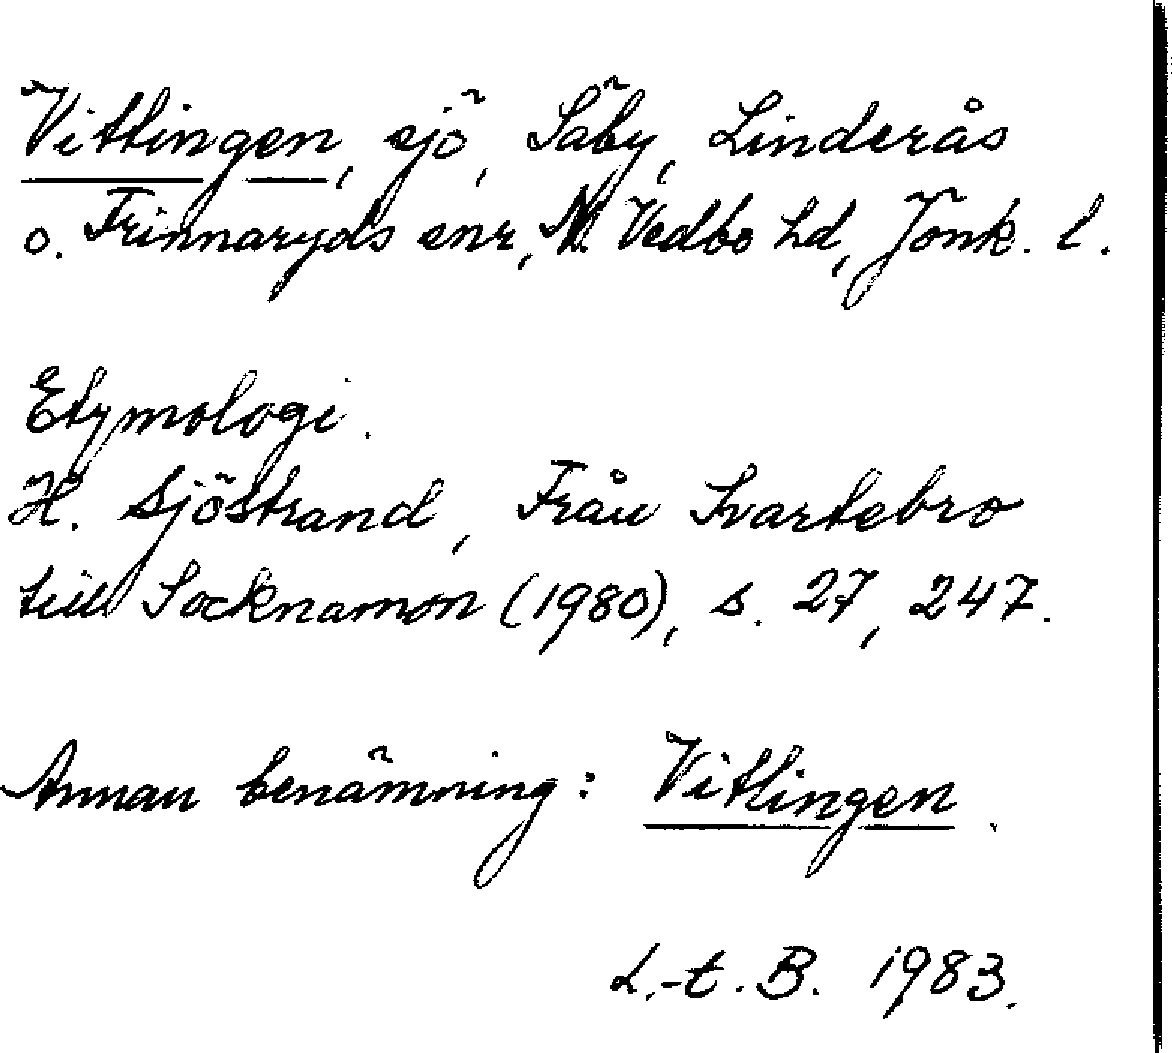 Vittingen, sjö, Säby, Linderås
o. Frinnaryds snr, N. Vedbo hd, Jönk. l.
Etymologi.
H. Sjöstrand, Från Svartebro
till Socknamon (1980), s. 27, 247.
Annan benämning: Vitlingen.
L.-t. B. 1983.